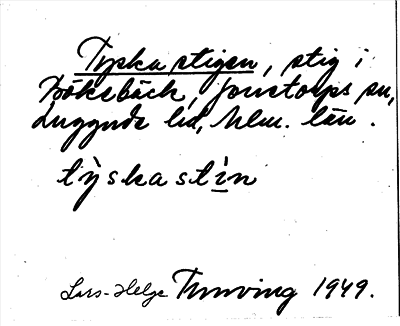 Tyska stigen, stig i
Bökebäck, Jonstorps sn,
Luggude hd, Mlm. län.
týskastìn
Lars-Helge Thunving 1949.